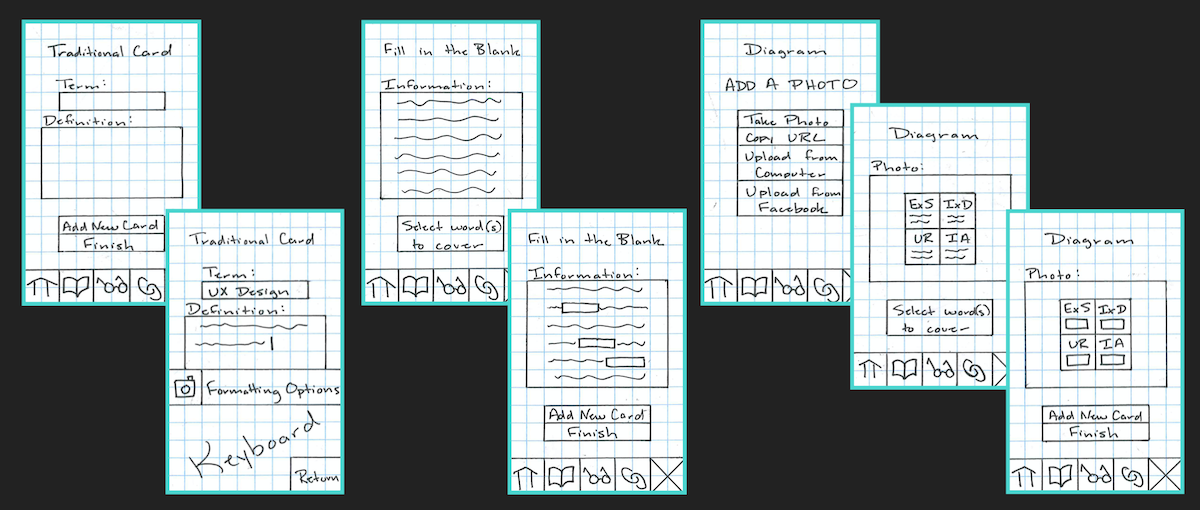 Traditional Card
Term:
Definition:
Add New Card
Finish
Traditional Card
Term:
UX Design
Definition:
Formatting Options
Keyboard
Return
Fill in the Blank
Information:
Select word(s)
to cover
Fill in the Blank
Information:
Add New Card
Finish
Diagram
ADD A PHOTO
Take Photo
Copy URL
Upload from
Computer
Upload from
Facebook
Diagram
Photo:
ExS IxD
UR IA
Select word(s)
to cover
Diagram
Photo:
ExS IxD
UR IA
Add New Card
Finish